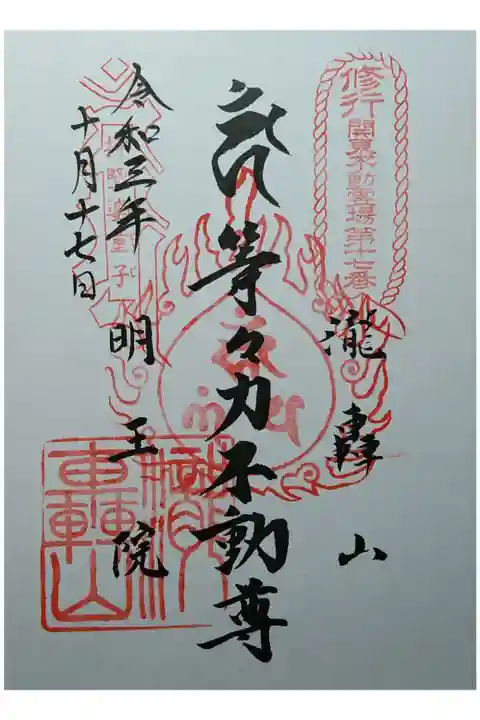 修行
関東不動霊場第十七番
瀧轟山
等々力不動尊
明王院
令和三年
十月十七日